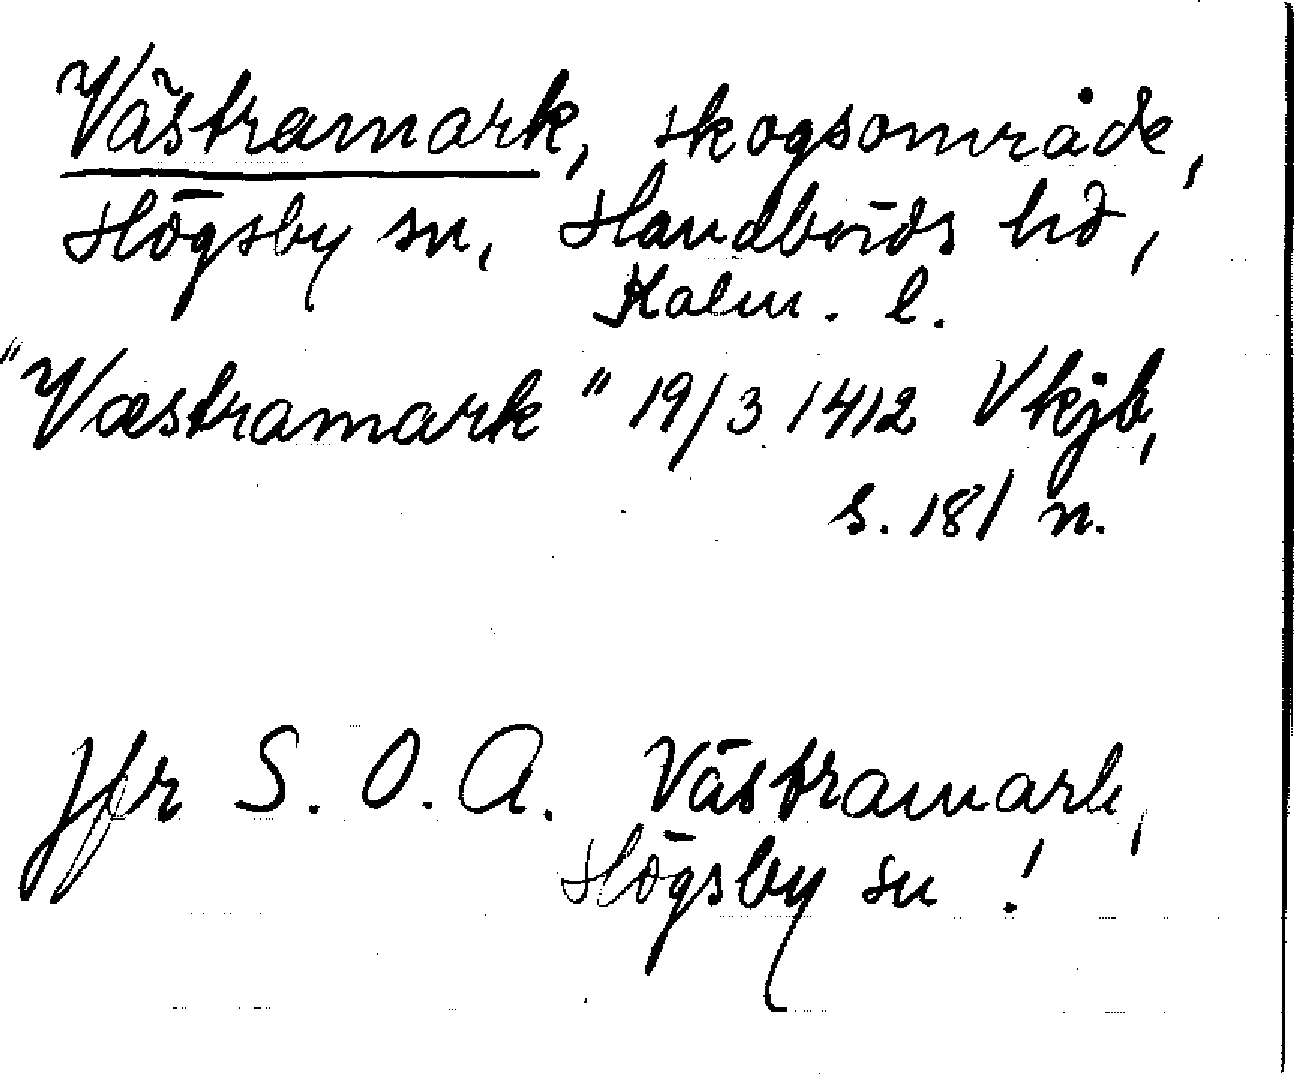 Västramark, skogsområde,
Högsby sn, Handbörds hd,
Kalm. l.
"Væstramark" 19/3 1412 Vkjb,
s. 181 n.
Jfr S.O.A. Västramark,
Högsby sn!